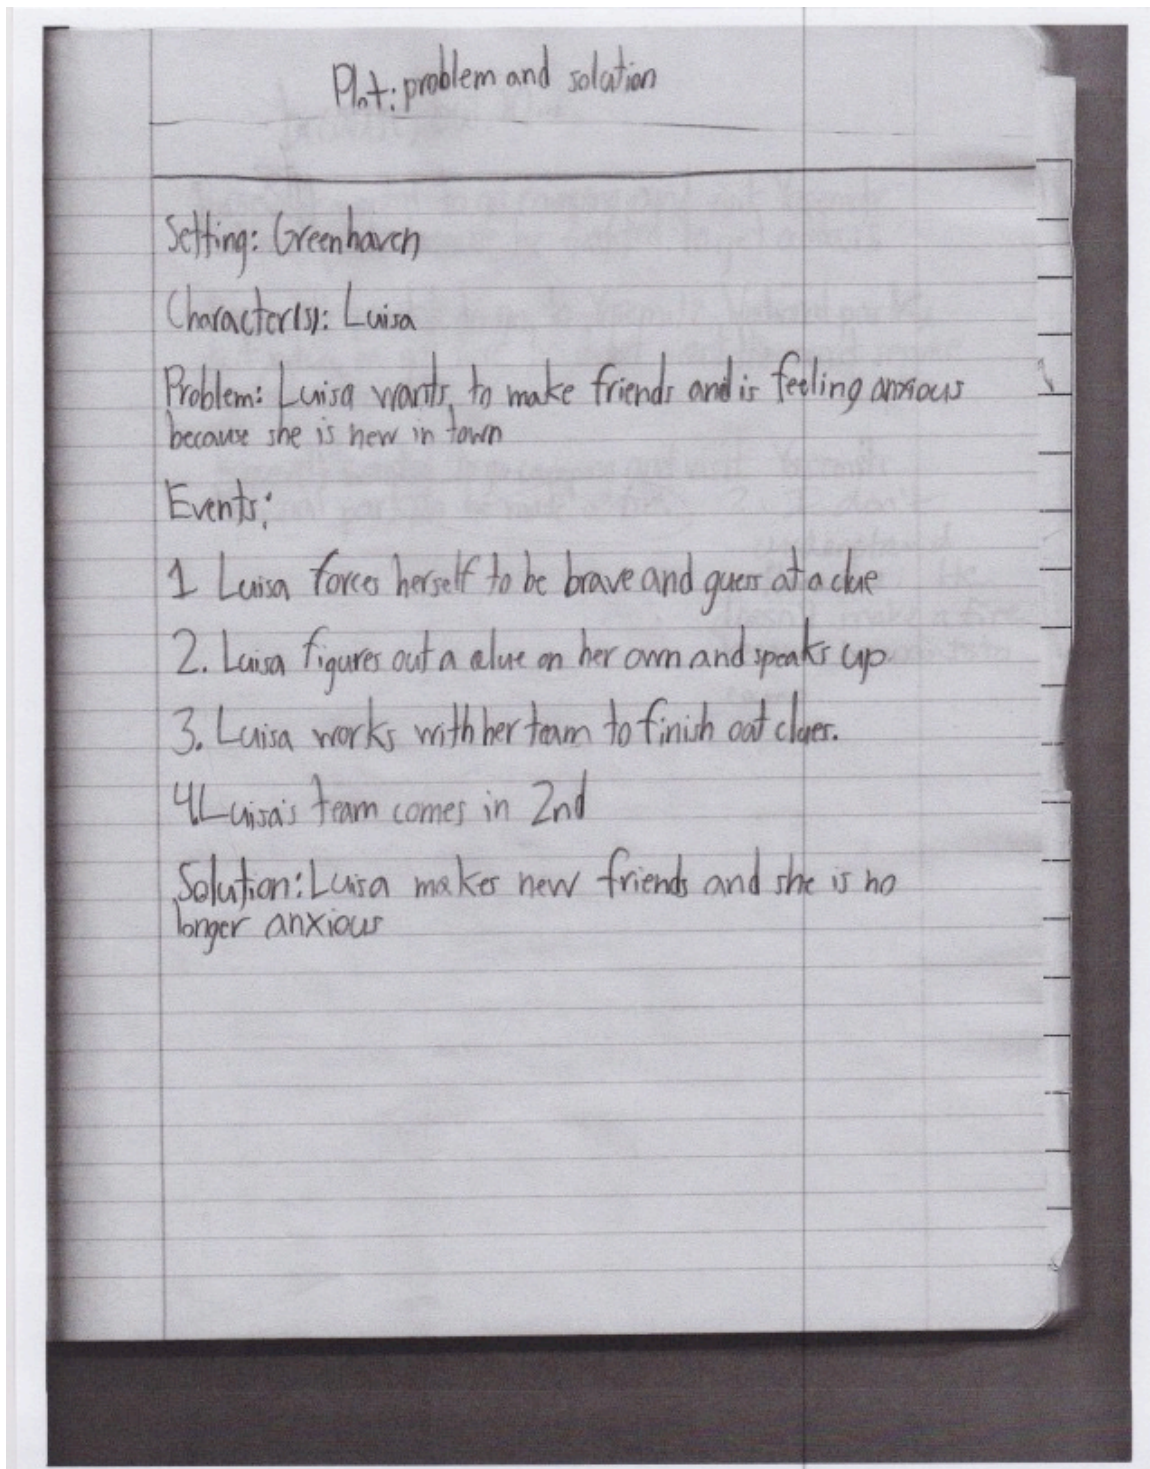 Plot: problem and solution
Setting: Greenhaven
Character(s): Luisa
Problem: Luisa wants to make friends and is feeling anxious
because she is new in town
Events:
1 Luisa forces herself to be brave and guess at a clue
2. Luisa figures out a clue on her own and speaks up
3. Luisa works with her team to finish out clues.
4. Luisa's team comes in 2nd
Solution: Luisa makes new friends and she is no
longer anxious